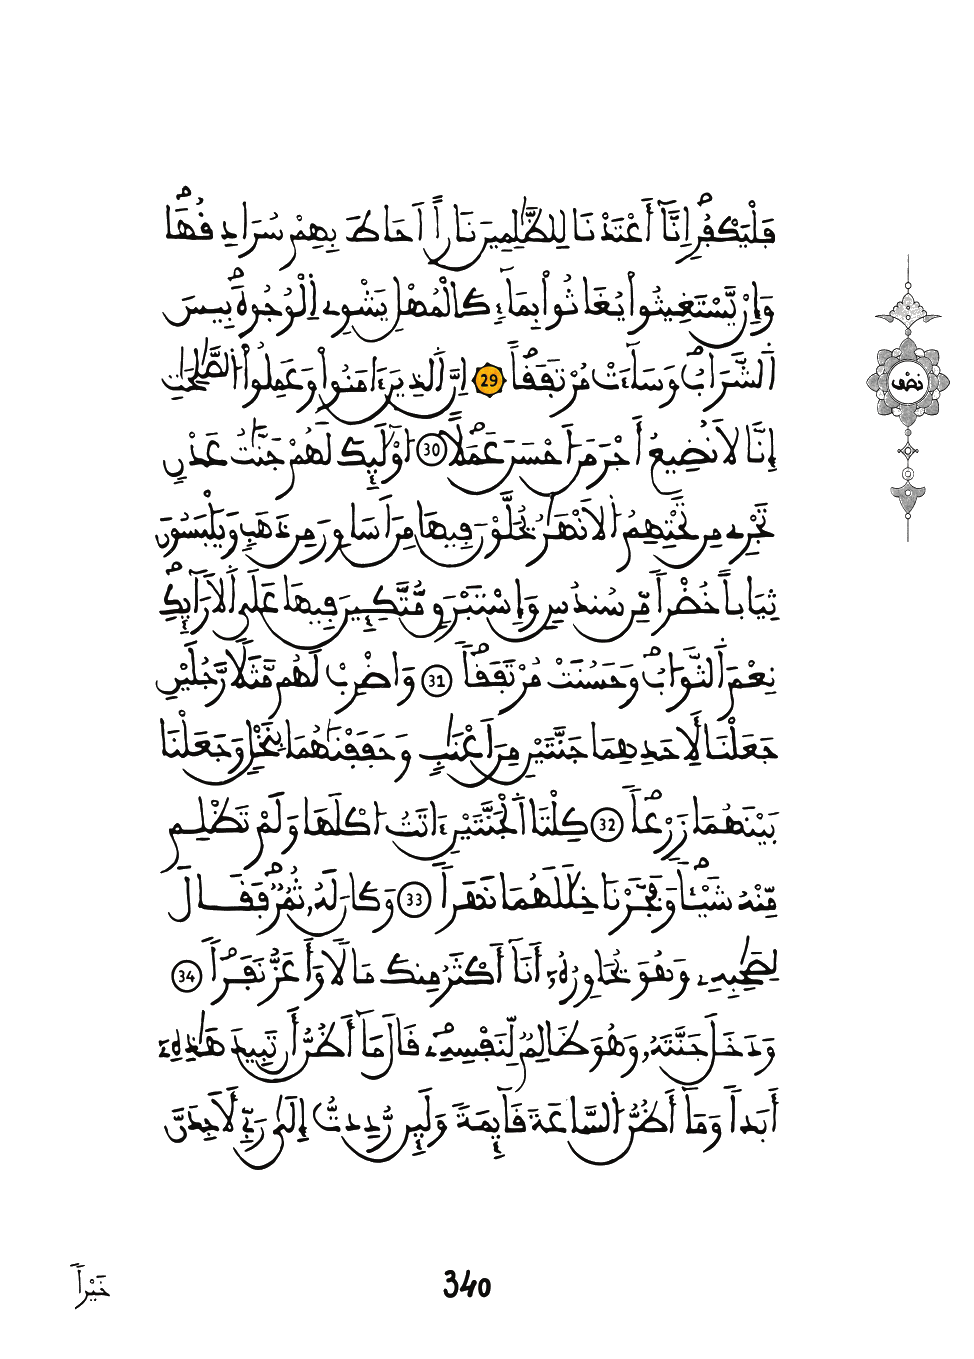 فَلْيَكْفُرِ اِنَّآ أَعْتَدْنَا لِلظَّٰلِمِينَ نَاراً أَحَاطَ بِهِمْ سُرَادِقُهَاۖ
وَإِنْ يَّسْتَغِيثُواْ يُغَاثُواْ بِمَآءٖ كَالْمُهْلِ يَشْوِے اِ۬لْوُجُوهَۖ بِيسَ
اَ۬لشَّرَابُۖ وَسَآءَتْ مُرْتَفَقاًۖ 29 اِنَّ اَ۬لذِينَ ءَامَنُواْ وَعَمِلُواْ اُ۬لصَّٰلِحَٰتِ
إِنَّا لَا نُضِيعُ أَجْرَ مَنَ اَحْسَنَ عَمَلاًۖ 30 ا۟وْلَٰٓئِكَ لَهُمْ جَنَّٰتُ عَدْنٖ
تَجْرِے مِن تَحْتِهِمُ اُ۬لَانْهَٰرُ يُحَلَّوْنَ فِيهَا مِنَ اَسَاوِرَ مِن ذَهَبٖ وَيَلْبَسُونَ
ثِيَاباً خُضْراٗ مِّن سُندُسٖ وَإِسْتَبْرَقٖ مُّتَّكِـِٕينَ فِيهَا عَلَي اَ۬لَارَآئِكِۖ
نِعْمَ اَ۬لثَّوَابُۖ وَحَسُنَتْ مُرْتَفَقاًۖ 31 وَاضْرِبْ لَهُم مَّثَلاٗ رَّجُلَيْنِ
جَعَلْنَا لِأَحَدِهِمَا جَنَّتَيْنِ مِنَ اَعْنَٰبٖ وَحَفَفْنَٰهُمَا بِنَخْلٖ وَجَعَلْنَا
بَيْنَهُمَا زَرْعاًۖ 32 كِلْتَا اَ۬لْجَنَّتَيْنِ ءَاتَتُ ا۟كْلَهَا وَلَمْ تَظْلِم
مِّنْهُ شَيْـٔاًۖ وَفَجَّرْنَا خِلَٰلَهُمَا نَهَراٗ 33 وَكَانَ لَهُۥ ثُمُرٞۖ فَقَالَ
لِصَٰحِبِهِۦ وَهُوَ يُحَاوِرُهُۥٓ أَنَآ أَكْثَرُ مِنكَ مَالاٗ وَأَعَزُّ نَفَراٗۖ 34
وَدَخَلَ جَنَّتَهُۥ وَهُوَ ظَالِمٞ لِّنَفْسِهِۦۖ قَالَ مَآ أَظُنُّ أَن تَبِيدَ هَٰذِهِۦٓ
أَبَداٗ وَمَآ أَظُنُّ اُ۬لسَّاعَةَ قَآئِمَةٗ وَلَئِن رُّدِدتُّ إِلَىٰ رَبِّے لَأَجِدَنَّ
خَيْراٗ
340
نصف